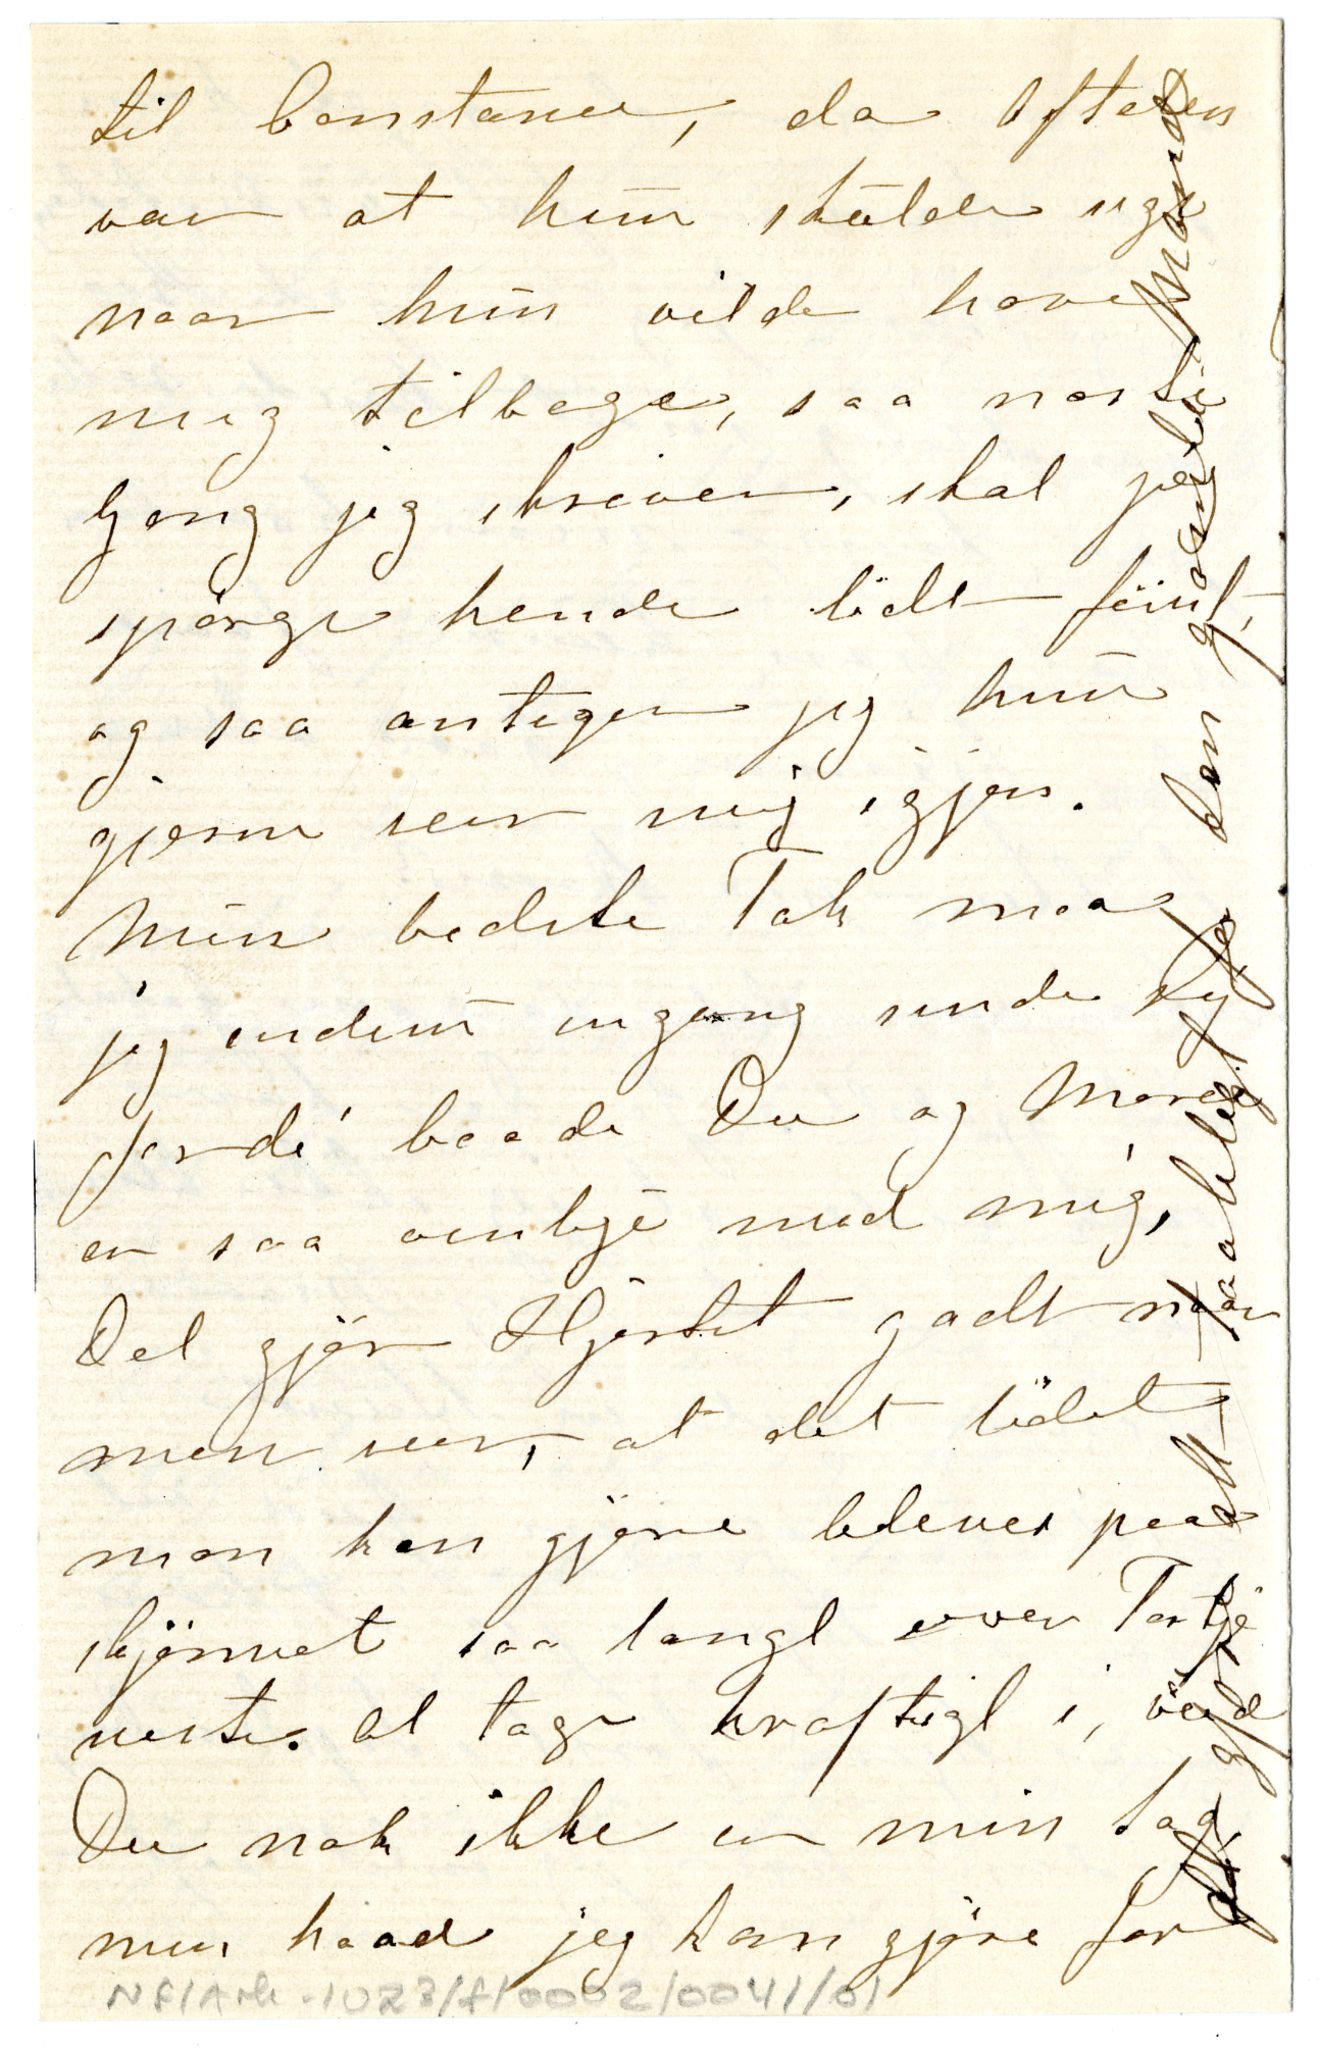 til Constance, da Aftalen
var at hun skulde sige
naar hun vilde have
mig tilbage, saa næste
Gang jeg skriver, skal jeg
spørge hende lidt fiint,
og saa antager jeg hun
gjerne seer mig igjen.
Min bedste Tak maa
jeg endnu engang sende Dig
fordi baade Du og Marie
er saa venlige med mig,
Det gjør Hjertet godt naar
man seer, at det lidet
man kan gjøre bliver paa
skjønnet saa langt over Fortje
neste. At tage kraftigt i, veed
Du nok ikke er min Sag
men hvad jeg kan gjøre for
at gjøre alt saa bleligt for den gamle Mand
NF/Ark-1023/F/0002/0041/01